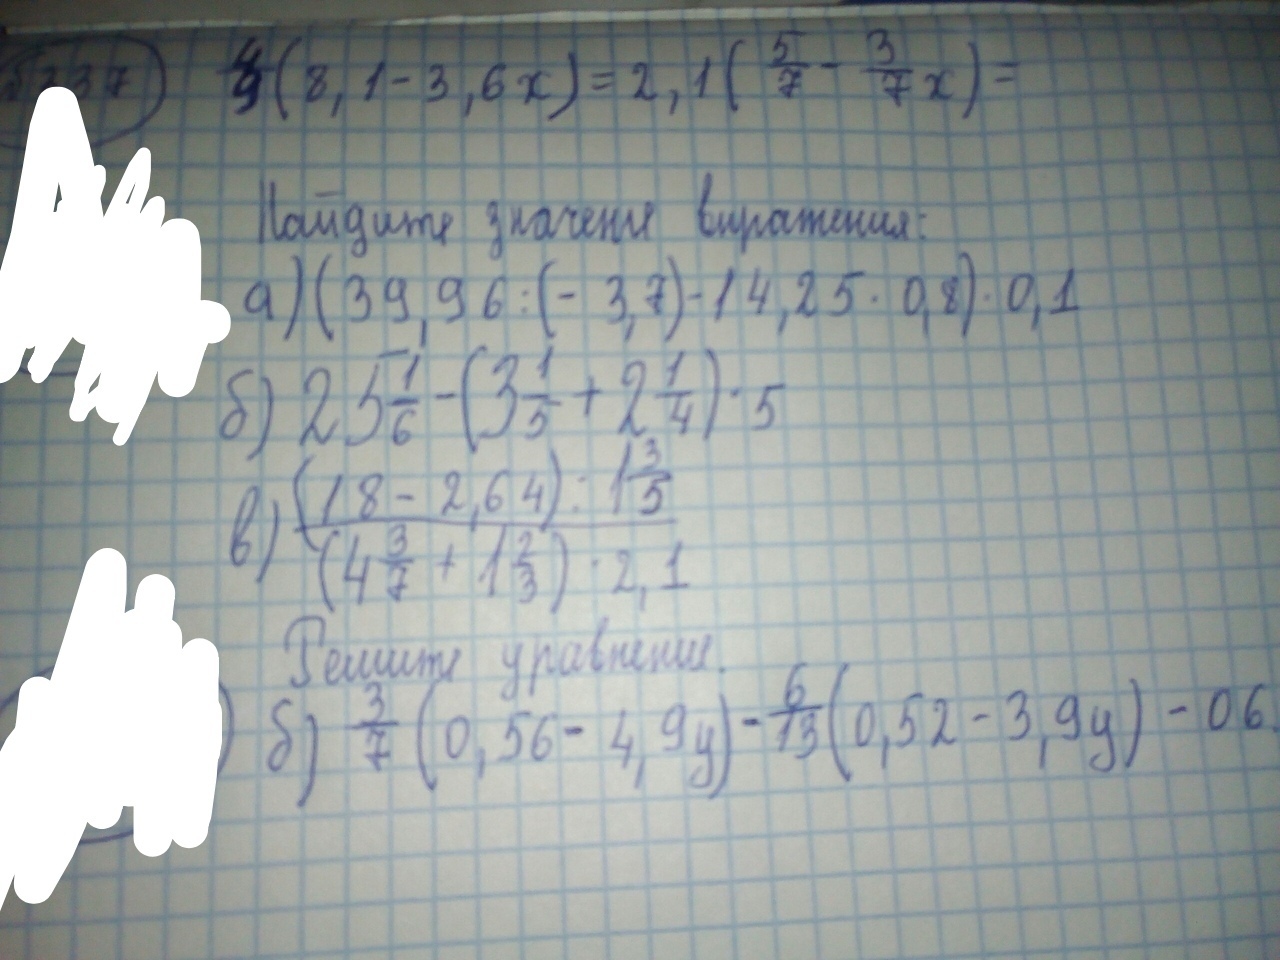 337 4/9(8,1-3,6x)=2,1(5/7-3/7x)=
Найдите значение выражения:
а)(39,96:(-3,7)-14,25·0,8)·0,1
б) 25 1/6-(3 1/5+2 1/4)·5
в) ((18-2,64):1 3/5)/((4 3/7+1 2/3)·2,1)
Решите уравнение.
б) 3/7(0,56-4,9y)-6/13(0,52-3,9y)-06.